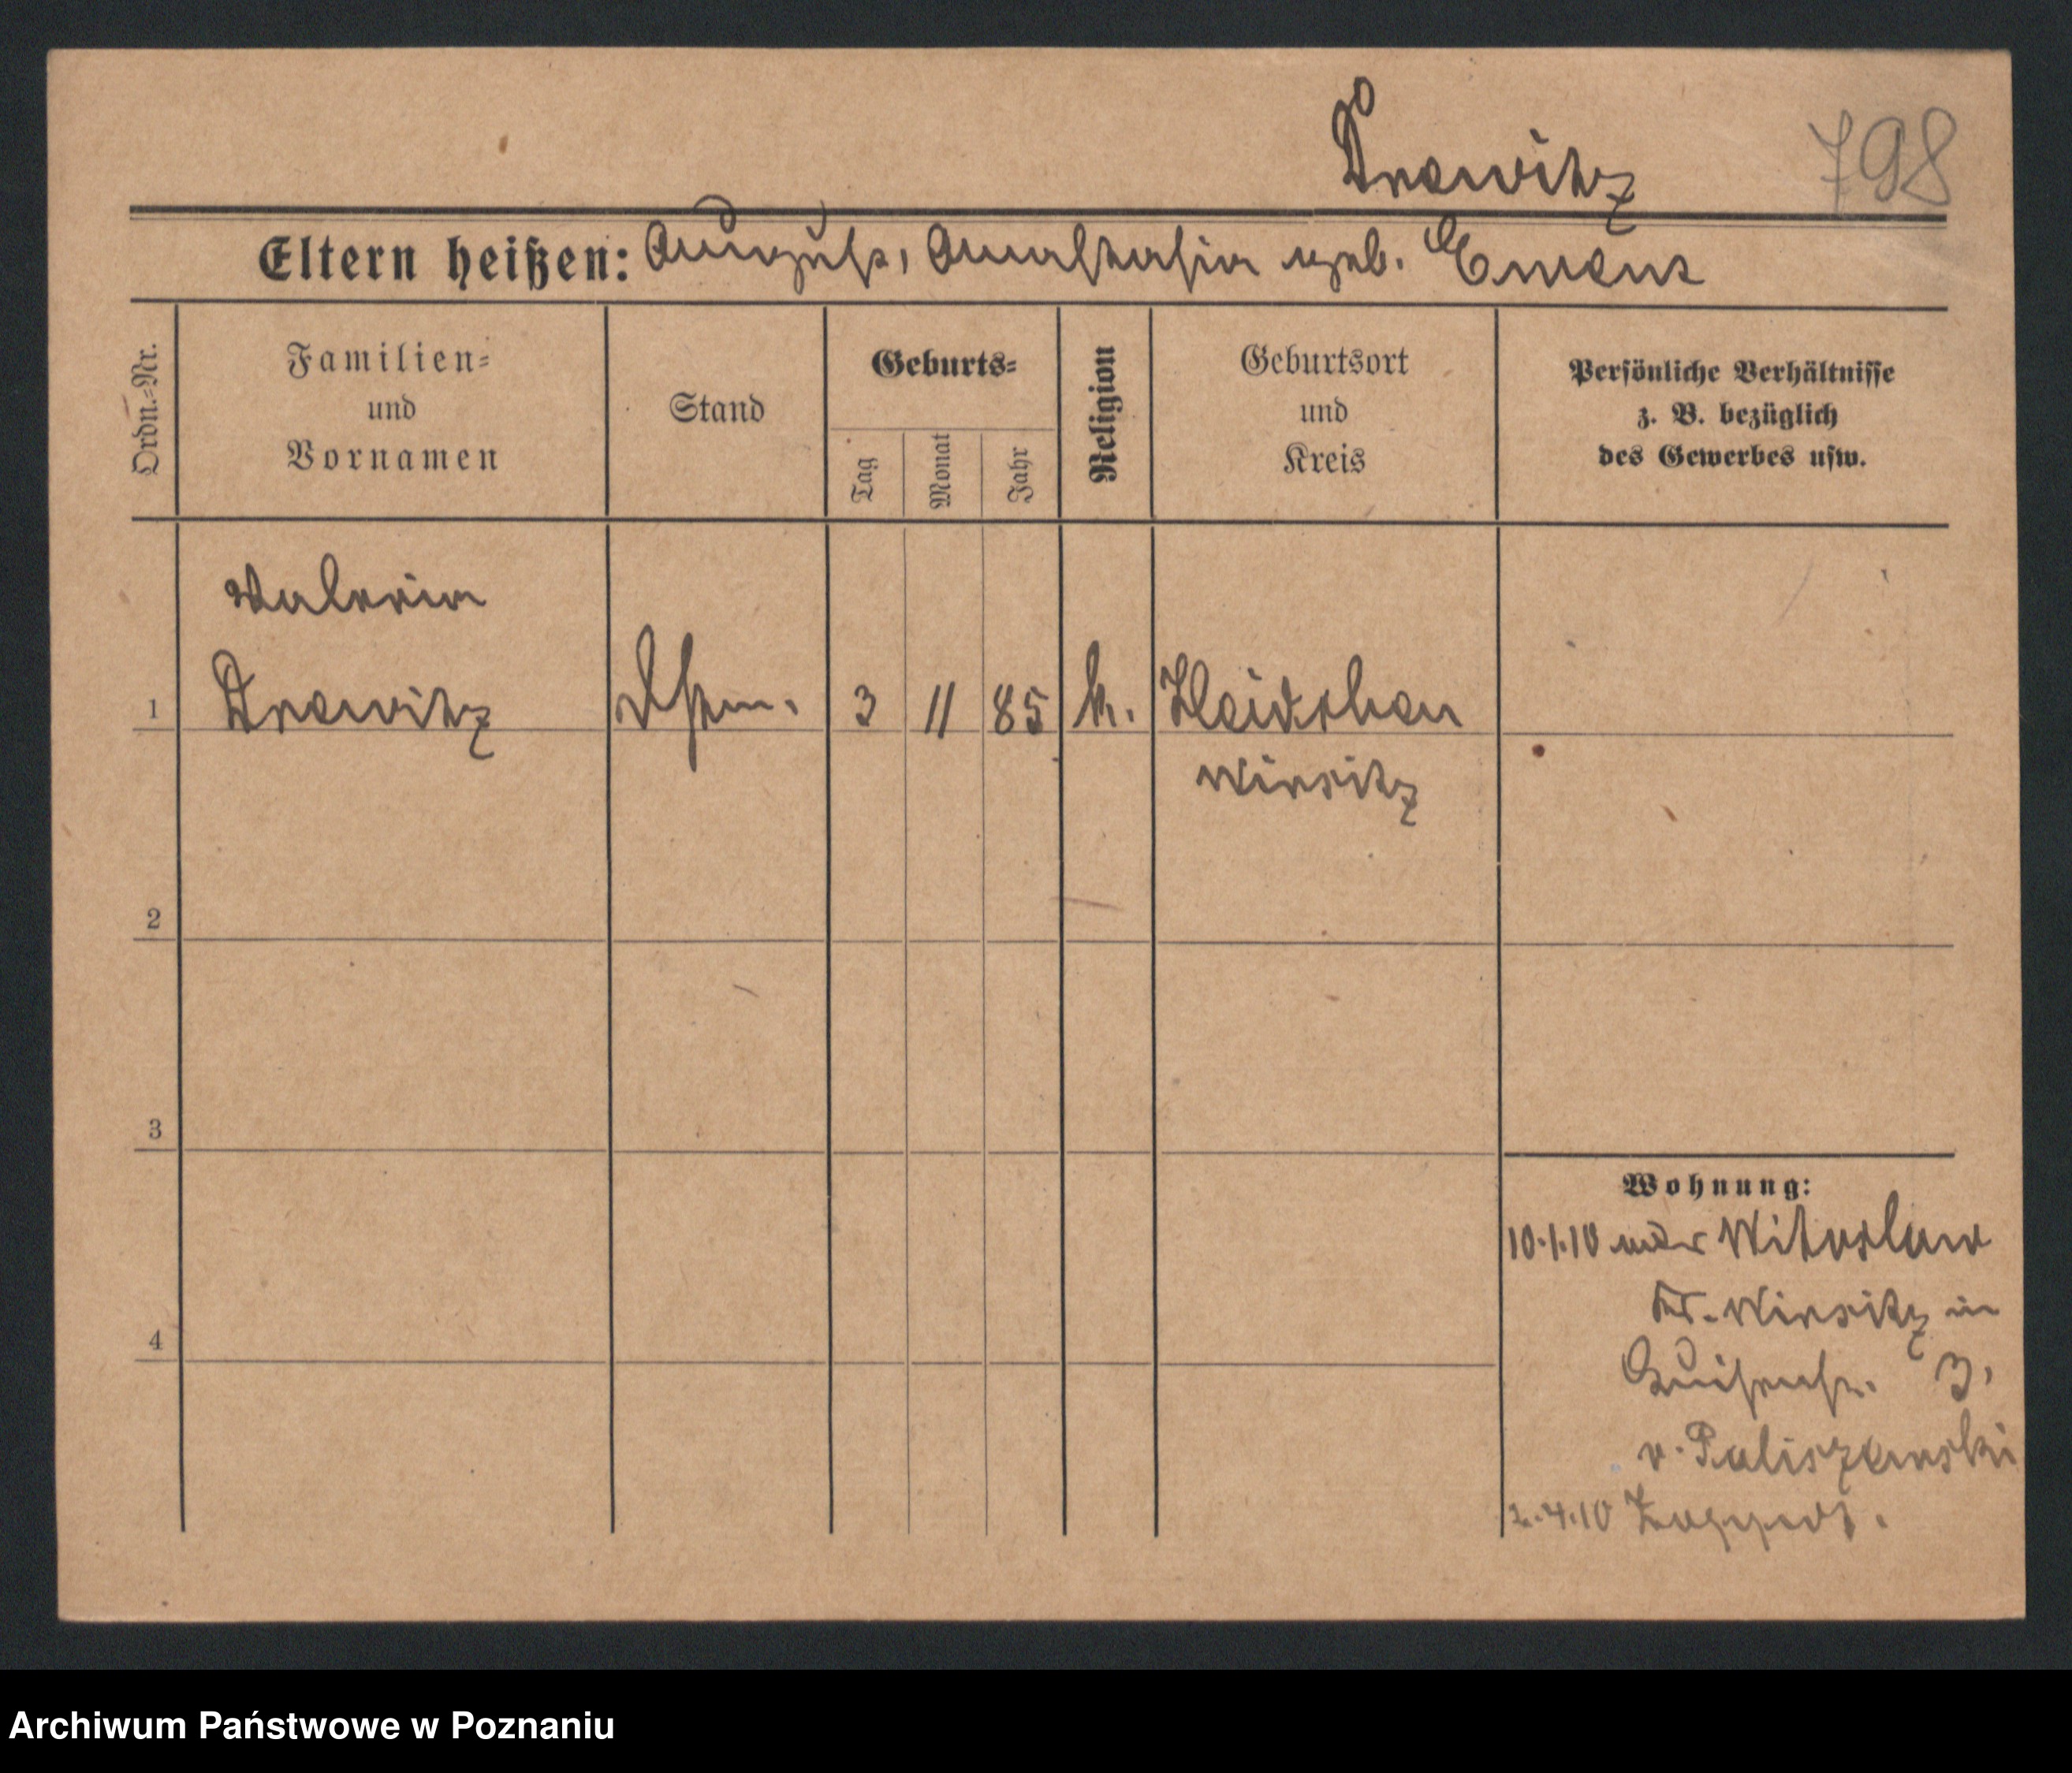 Drewitz 798
Eltern heißen: August, Anastasia geb. Emenz
Ordn.-Nr.
Familien-
und
Vornamen
Stand
Geburts-
Tag
Monat
Jahr
Religion
Geburtsort
und
Kreis
Persönliche Verhältnisse
z. B. bezüglich
des Gewerbes usw.
Valeria
1 Drewitz 3 11 85 k.
Wirsitz
2
3
4
Wohnung:
10.1.10 Witoslaw
Kr. Wirsitz in
Luisenstr. 3,
v. Paliszewski
2.4.10 Zoppot.
Archiwum Państwowe w Poznaniu